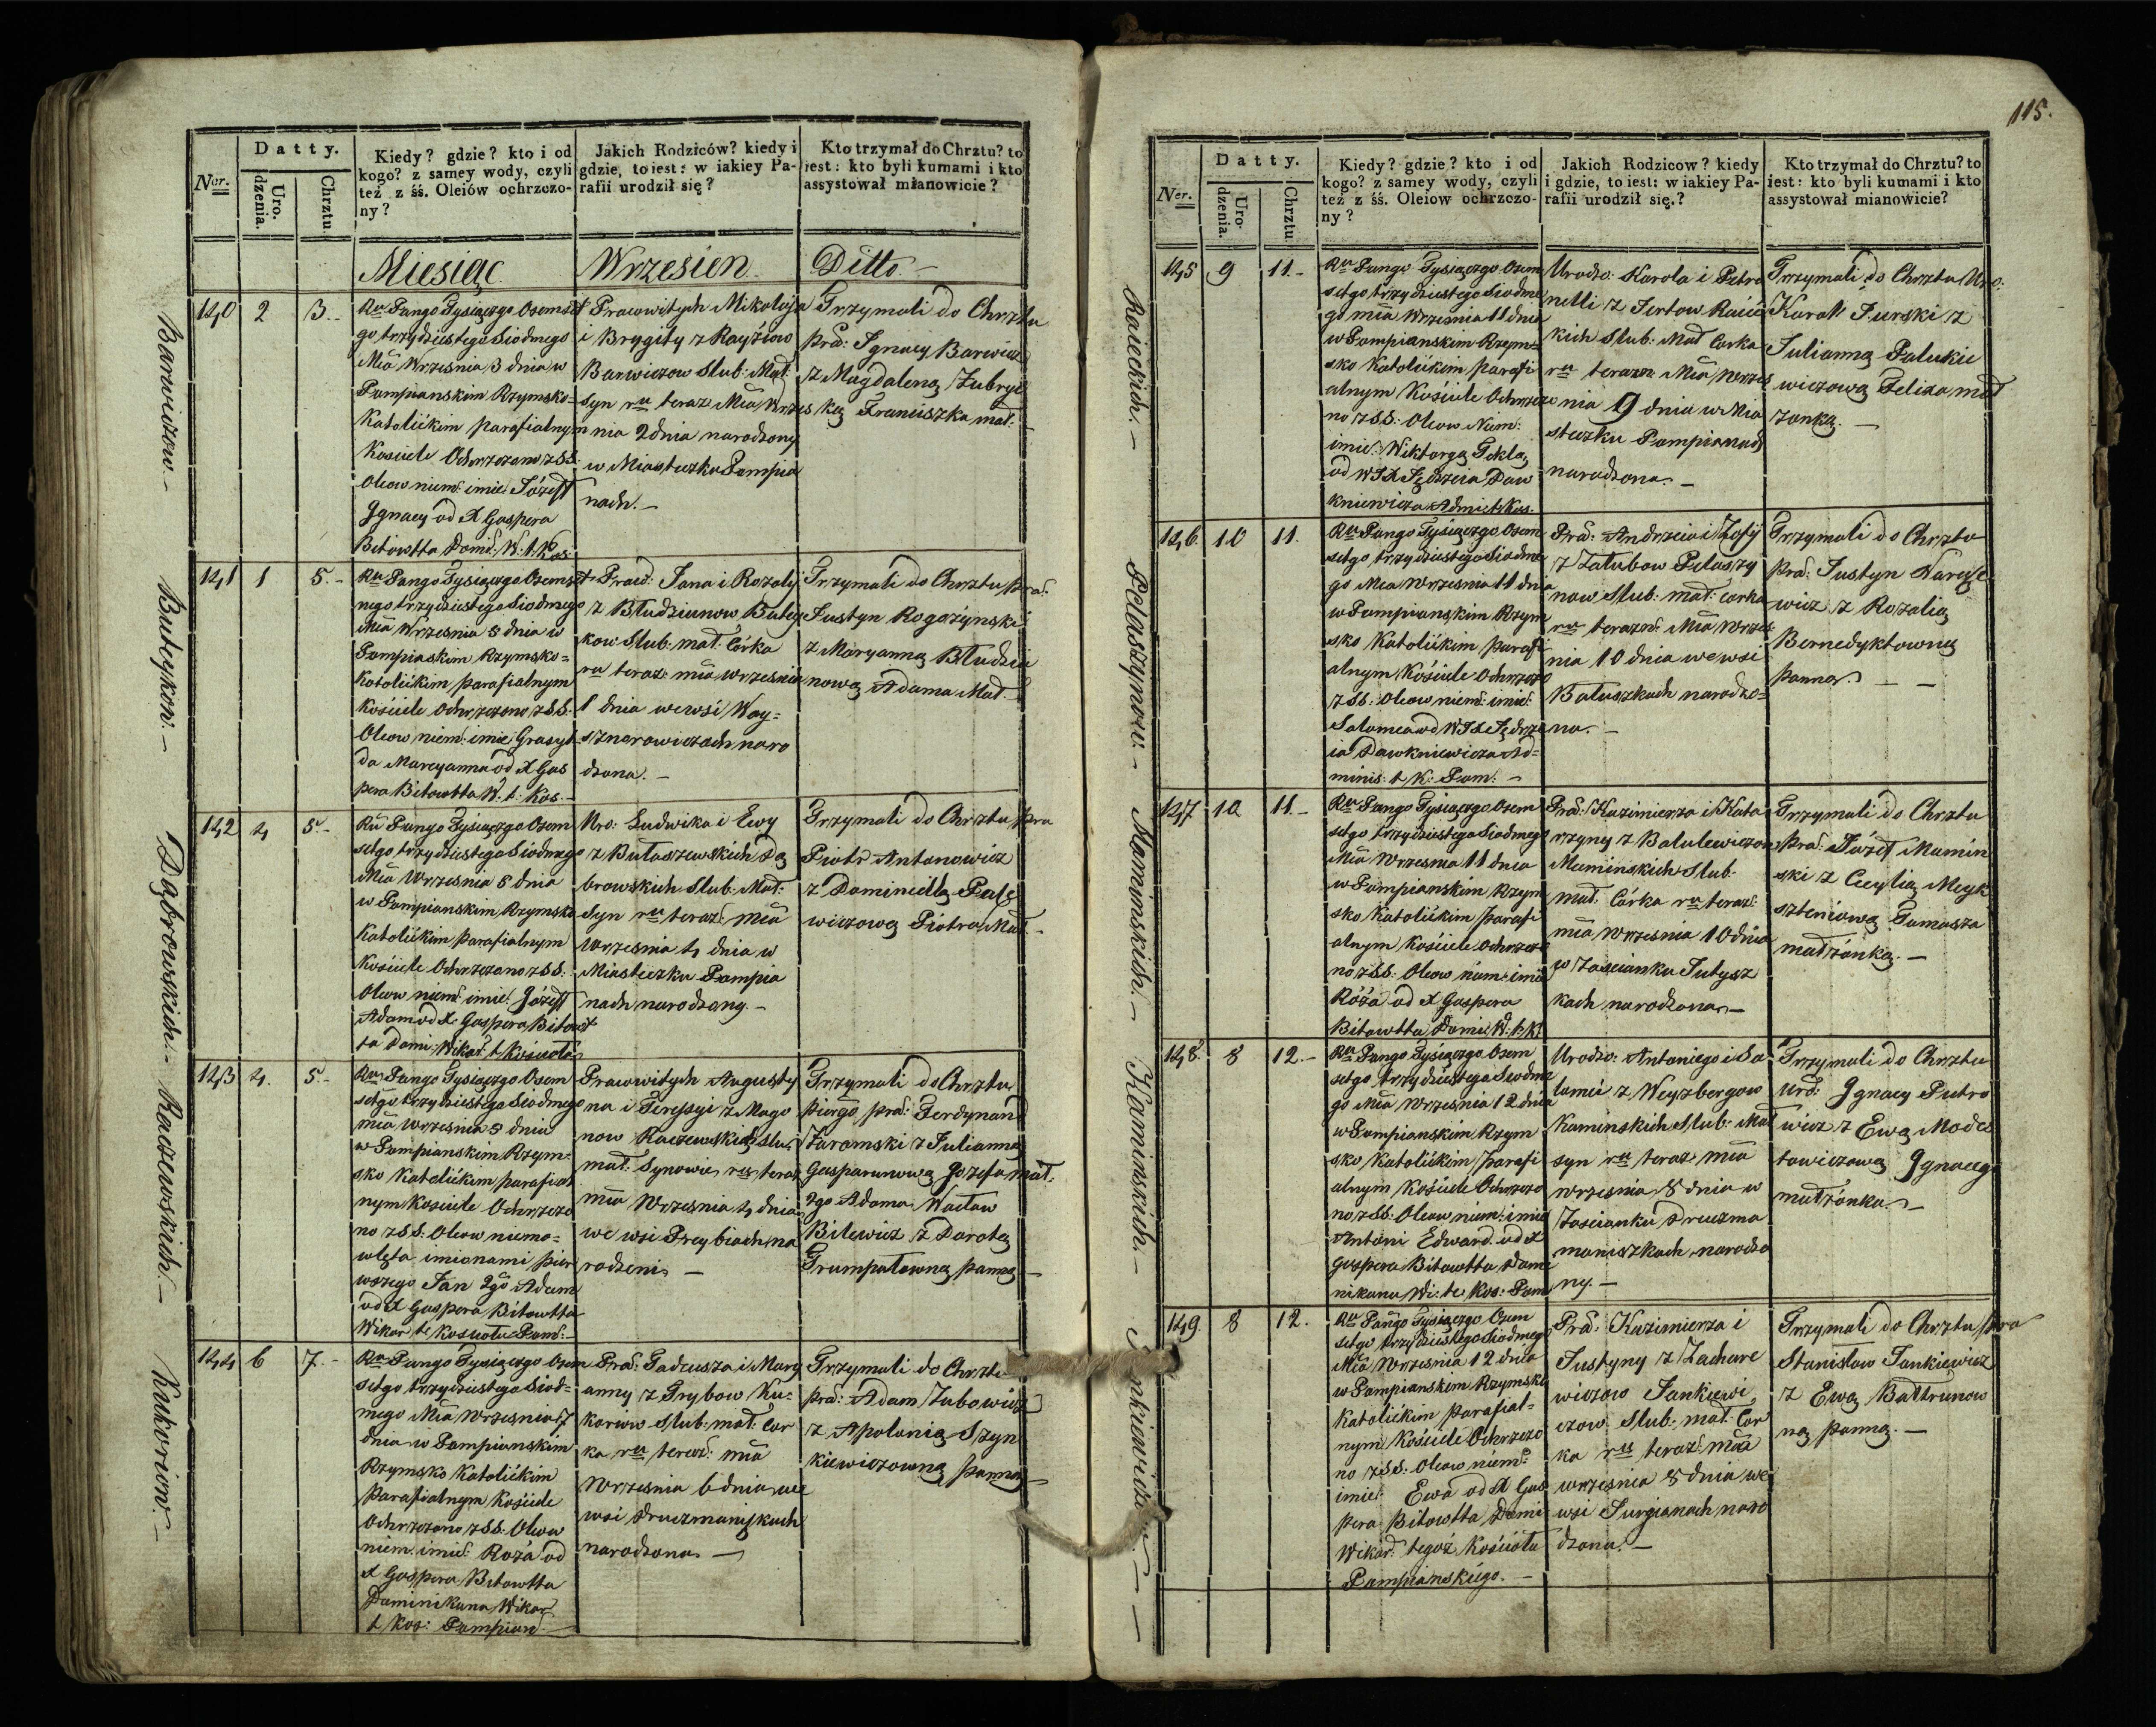 Ner.
Datty.
Uro.
dzenia.
Chrztu
Kiedy? gdzie? kto i od
kogo? z samey wody, czyli
też z śś. Oleiów ochrzczo-
ny?
Jakich Rodziców? kiedy i
gdzie, to iest: w iakiey Pa-
rafii urodził się?
Kto trzymał do Chrztu? to
iest: kto byli kumami i kto
assystował mianowicie?
Miesiąc
Wrzesien
Ditto. —
Barwiczow. —
140
2
3. -
Ru Pango Tysiączgo Osemset
go trzydziestego Siodmego
Mca Wrzesnia 3 dnia w
Pompianskim Rzymsko-
Katolickim parafialnym
Kosciele Ochrzczono z SS.
Oleow niem: imie: Józeff
Jgnacy od X Gaspera
Bitowtta Domi: W. t. Kos:
Prawwitych Mikołaja
i Brygity z Rayżow
Barwiczow Slub: Mał:
Syn ru teraz: Mca Wrzes
nia 2 dnia narodzony
w Miasteczku Pompia
nach. —
Trzymali do Chrztu
pra: Jgnacy Barwicz
z Magdaleną Zubryc
ką Franciszka mał:
Butrykow. —
141
1
5. -
Ru Pango Tysiączgo Osemset
nego trzydziestego Siodmego
Mca Wrzesnia 5 dnia w
Pompiaskim Rzymsko-
Katolickim parafialnym
Kościele Ochrzczono z SS.
Oleow niem: imie: Grasyl
da Maryanna od X Gas
pera Bitowtta W. t. Kos. —
Prawd: Jana i Rozalij
z Błudziunow Butry
kow Slub: mał: Córka
ru teraz: mca wrzesnia
1 dnia wewsi Woy-
sznarowiczach naro
dzona. —
Trzymali do Chrztu pra:
Justyn Rogożynski
z Maryanną Błudziu
nową Adama Mał:
Dąbrowskich. —
142
4
5. -
Ru Pango Tysiączgo Osem
setgo trzydziestego Siodmego
Mca Wrzesnia 5 dnia
w Pompianskim Rzymsko
Katolickim parafialnym
Kosciele Ochrzczono z SS.
Oleow niem: imie: Józeff
Adam od X Gaspera Bitowt
ta Domi: Wikar: t. Kościoła
Uro: Ludwika i Ewy
z Butaszewskich Dą
browskich Slub: Mał:
Syn ru teraz: mca
Wrzesnia 4 dnia w
Miasteczku Pompia
nach narodzony. —
Trzymali do Chrztu pra
Piotr Antonowicz
z Dominellą Pale
wiczową Piotra Mał. -
Raczewskich. —
143
4.
5. -
Ru Pango Tysiączgo Osem
setgo trzydziestego Siodmego
mca wrzesnia 5 dnia
w Pompianskim Rzym-
sko Katolickim parafial
nym Kosciele Ochrzczo
no z SS. Oleow niemo-
wlęta imionami pier
wszego Jan 2go Adam
od X Gaspera Bitowtta
Wikar te Kosciołu Pom: —
Prawwitych Augusty
na i Teressyi z Mago
now Raczewskich Slu:
mał: Synowie ru teraz
mca Wrzesnia 4 dnia
we wsi Preybiach na
rodzeni. —
Trzymali do Chrztu
piergo pra: Ferdynand
Zaromski z Julianną
Gasparunową Jozefa mał.
2go Adama Wacław
Bilewicz z Dorotą
Grumpatowną panną —
Kukoriow. —
144
6
7. -
Ru Pango Tysiączgo Osem
setgo trzydziestego Siod-
mego Mca Wrzesnia 7
dnia w Pompianskim
Rzymsko Katolickim
Parafialnym Kościele
Ochrzczono z SS. Oleow
niem: imie: Roża od
X Gaspera Bitowtta
Dominikana Wikar
t. Kos: Pompian —
Pra: Tadeusza i Mary
anny z Trybow Ku-
koriow Slub: mał: Cor
ka ru teraz: mca
Wrzesnia 6 dnia we
wsi Druczmaniszkach
narodzona —
Trzymali do Chrztu
pra: Adam Zubowicz
z Apolonią Szyn
kiewiczowną panną —
115.
Ner.
Datty.
Uro
dzenia.
Chrztu
Kiedy? gdzie? kto i od
kogo? z samey wody, czyli
też z śś. Oleiow ochrzczo-
ny?
Jakich Rodzicow? kiedy
i gdzie, to iest: w iakiey Pa-
rafii urodził się.?
Kto trzymał do Chrztu? to
iest: kto byli kumami i kto
assystował mianowicie?
Raieckich. —
145
9
11. -
Ru Pango Tysiączgo Osem
setgo trzydziestego Siodme
go mca Wrzesnia 11 dnia
w Pompianskim Rzym-
sko Katolickim parafi
alnym Kościele Ochrzczo
no z SS. Oleow Niem:
imie: Wiktorya Tekla
od WJX Jędrzeia Daw
kniewicza Admi: t. Kos:
Urodzo: Karola i Petro
nelli z Jertow Raiec
kich Slub: Mał Corka
ru terazn: Mca Wrzes
nia 9 dnia w Mia
steczku Pompianach
narodzona. —
Trzymali do Chrztu Uro:
Karoll Jurski z
Julianną Palukie
wiczową Felixa mał
żonką. —
Pelaszynow. —
146
10
11
Ru Pango Tysiączgo Osem
setgo trzydziestego Siodme
go Mca Wrzesnia 11 dni
w Pompianskim Rzym
sko Katolickim parafi
alnym Kościele Ochrzczo
z SS. Oleow niem: imie:
Salomea od WJX Jędrze
ia Dawkniewicza Ad-
minis: t. K: Pom: —
Pra: Andrzeia i Zofij
z Załubow Pelaszy
now Slub: mał: corka
ru terazn: Mca Wrzes
nia 10 dnia we wsi
Bałuszkach narodzo-
na. —
Trzymali do Chrztu
pra: Justyn Narcysse
wicz z Rozalią
Bernedyktowną
panna. — —
Maminskich. —
147
10
11. -
Ru Pango Tysiączgo Osem
setgo trzydziestego Siodmego
Mca Wrzesnia 11 dnia
w Pompianskim Rzym
sko Katolickim parafi
alnym Kościele Ochrzczo
no z SS. Oleow niem: imie
Róża od X Gaspera
Bitowtta Domi: W: t. K:
Pra: Kazimierza i Kata
rzyny z Balulewiczow
Maminskich Slub:
mał: Córka ru teraz:
mca wrzesnia 10 dnia
w Zascianku Jutysz
kach narodzona —
Trzymali do Chrztu
pra: Józef Mamin
ski z Cecylią Meyk
szteniową Tomasza
małżonką. —
Kaminskich. —
148.
8
12. -
Ru Pango Tysiączgo Osem
setgo trzydziestego Siodme
go Mca Wrzesnia 12 dnia
w Pompianskim Rzym
sko Katolickim parafi
alnym Kościele Ochrzczo
no z SS. Oleow niem: imie
Antoni Edward od X
Gaspera Bitowtta Domi
nikana Wi: te: Kos: Pom
Urodzo: Antoniego i Sa
lomei z Weyzbergow
Kaminskich Slub: Mał
syn ru teraz: mca
wrzesnia 8 dnia w
Zascianku Druczma
maniszkach narodzo
ny. —
Trzymali do Chrztu
Urd: Jgnacy Putro
wicz z Ewą Modes
towiczową Jgnacego
małżonka. —
149.
8
12.
Ru Pango Tysiączgo Osem
setgo trzydziestego Siodmego
Mca Wrzesnia 12 dnia
w Pompianskim Rzymsko
Katolickim parafial-
nym Kościele Ochrzczo
no z SS. Oleow niem:
imie: Ewa od X Gas
pera Bitowtta Domi
Wikar: tegoż Kościoła
Pampianskiego. —
Pra: Kazimierza i
Justyny z Zachare
wiczow Jankiewi
czow Slub: mał: Cor
ka ru teraz: mca
wrzesnia 8 dnia we
wsi Jurgianach naro
dzona. —
Trzymali do Chrztu pra
Stanisław Jankiewicz
z Ewą Bałtrunow
ną panną. —